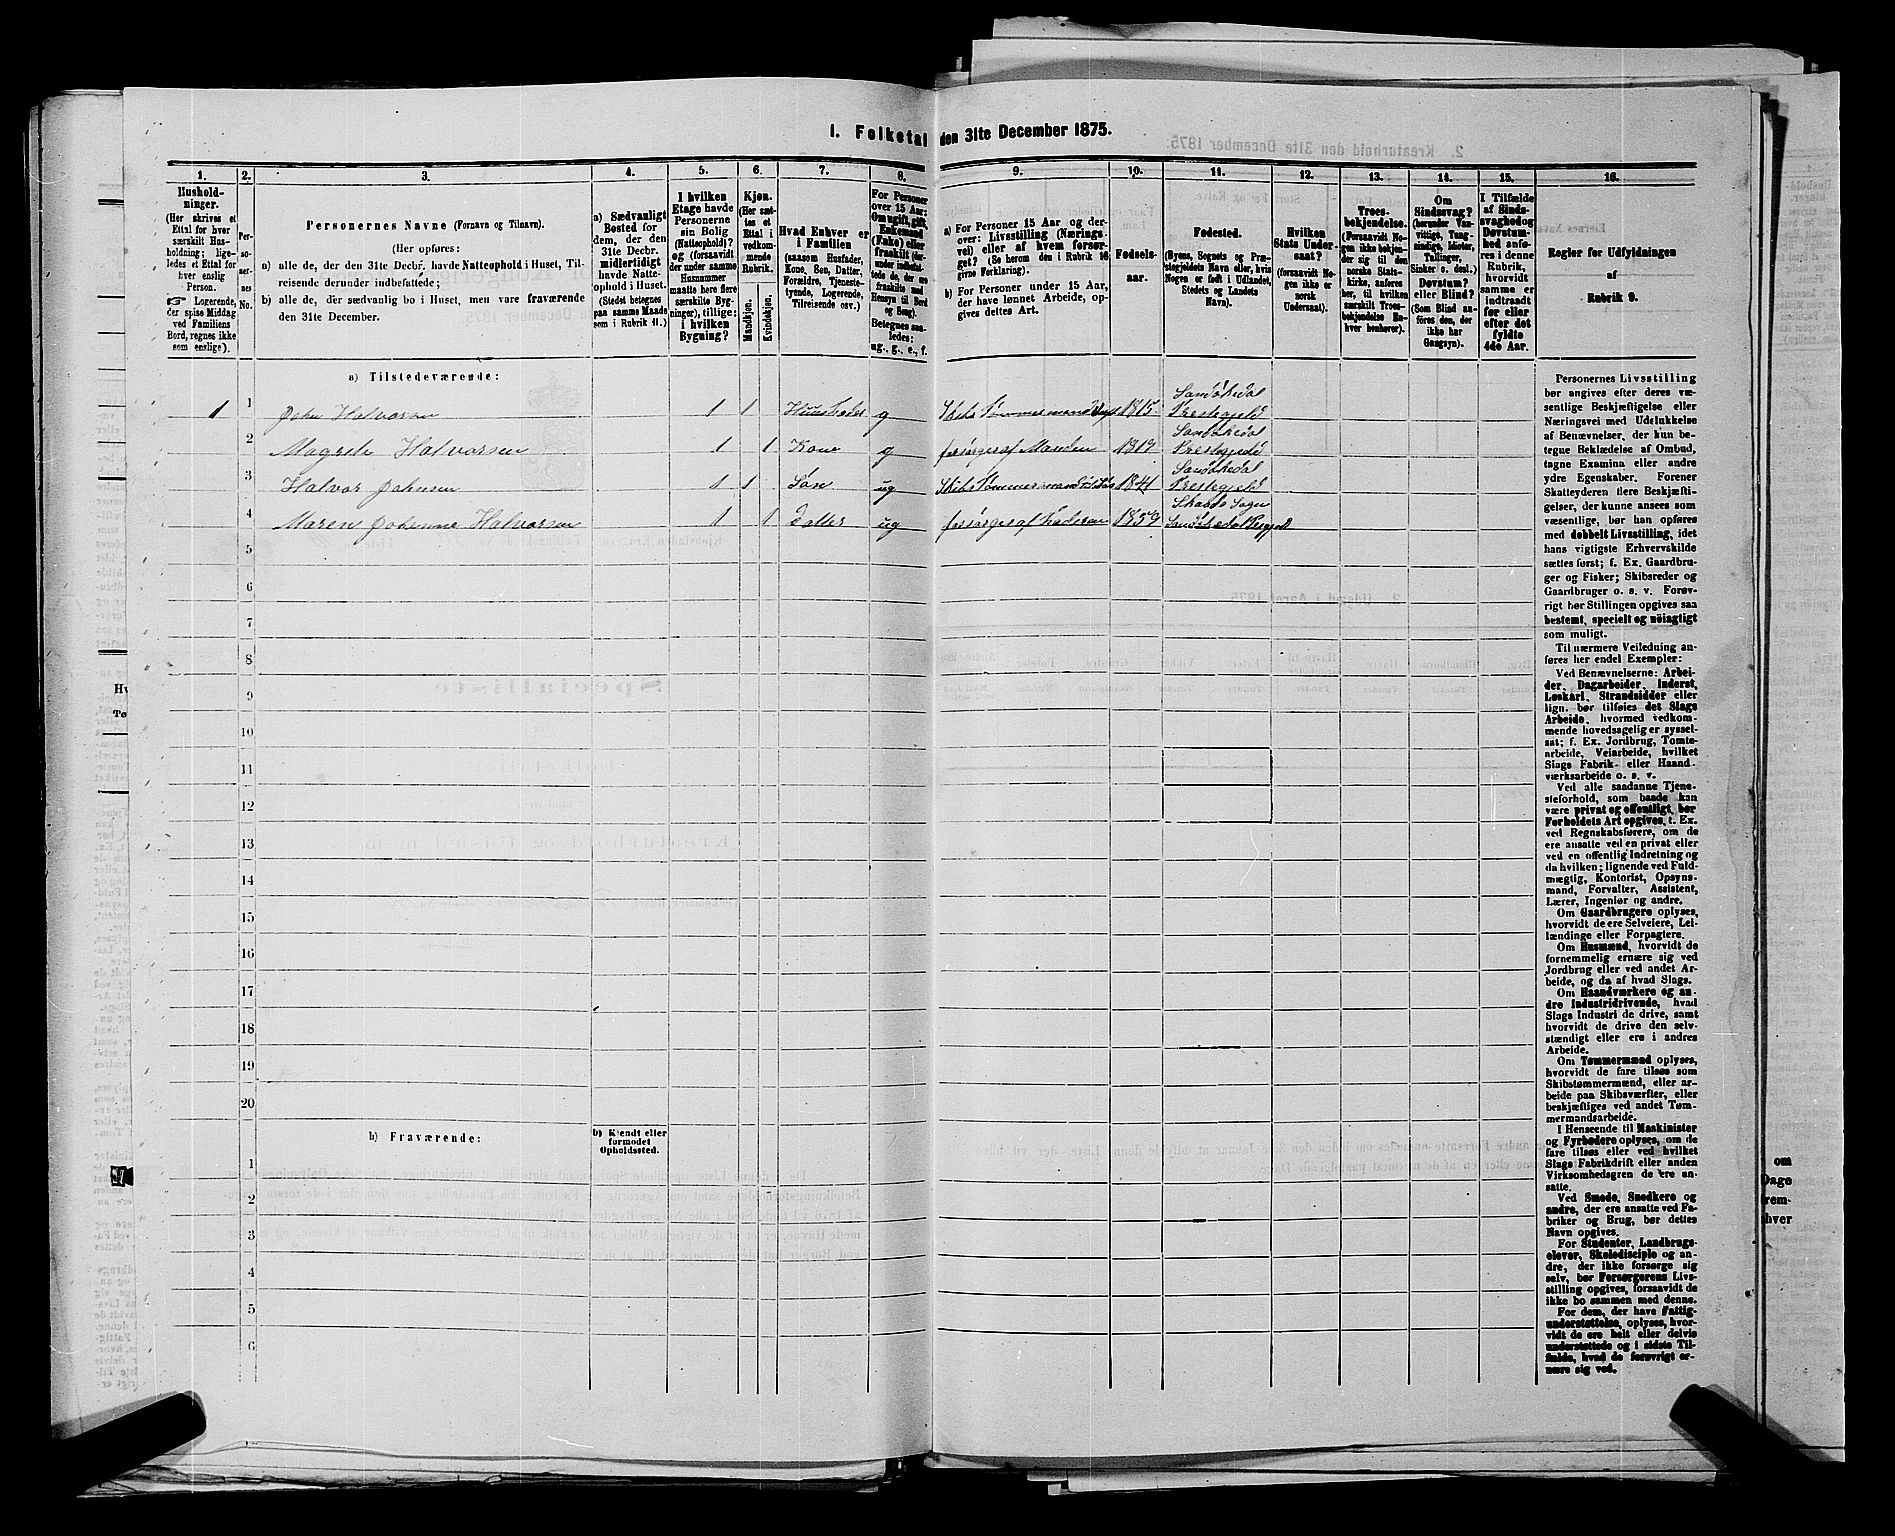 1. Folketal den 31te December 1875.
1. 2. 3. 4. 5. 6. 7. 8. 9. 10. 11. 12. 13. 14. 15. 16.
Hushold-
ninger.
(Her skrives et
Ettal for hver
særskilt Hus-
holdning; lige-
ledes et Ettal for
hver enslig
Person.
☞ Logerende,
der spise Middag
ved Familiens
Bord, regnes ikke
som enslige).
Per-
so-
ner-
nes
No.
Personernes Navne (Fornavn og Tilnavn).
(Her opføres:
a) alle de, der den 31te Decbr. havde Natteophold i Huset, Til-
reisende derunder indbefattede;
b) alle de, der sædvanlig bo i Huset, men vare fraværende
den 31te December.
a) Sædvanligt
Bosted for
dem, der den
31te Decbr.
midlertidigt
havde Natte-
ophold i Huset.
(Stedet betegnes
paa samme Maade
som i Rubrik 11.)
I hvilken
Etage havde
Personerne
sin Bolig
(Natteophold)?
og (forsaavidt
der under samme
Husnummer
maatte høre flere
særskilte Byg-
ninger), tillige:
i hvilken
Bygning?
Kjøn.
(Her sæt-
tes et
Ettal i
vedkom-
mende
Rubrik.
Mandkjøn.
Kvindekjøn.
Hvad Enhver er
i Familien
(saasom Husfader,
Kone, Søn, Datter,
Forældre, Tjeneste-
tyende, Logerende,
Tilreisende osv.)
For Personer
over 15 Aar:
Om ugift, gift,
Enkemand
(Enke) eller
fraskilt (der-
under indbefat-
tede de, der ere
fraskilte med
Hensyn til Bord
og Seng).
Betegnes saa-
ledes:
ug., g., e., f.
a) For Personer 15 Aar og der-
over: Livsstilling (Nærings-
vei) eller af hvem forsør-
get? (Se herom den i Rubrik 16
givne Forklaring).
b) For Personer under 15 Aar,
der have lønnet Arbeide, op-
gives dettes Art.
Fødsels-
aar.
Fødested.
(Byens, Sognets og Præ-
stegjeldets Navn eller, hvis
Nogen er født i Udlandet,
Stedets og Landets
Navn).
Hvilken
Stats Under-
saat?
(forsaavidt No-
gen ikke er
norsk
Undersaat).
Troes-
bekjendelse.
(Forsaavidt No-
gen ikke bekjen-
der sig til den
norske Stats-
kirke, anføres
her, til hvilken
særskilt Troes-
bekjendelse En-
hver henhører).
Om
Sindssvag?
(herunder Van-
vittige, Tung-
sindige, Idioter,
Tullinger,
Sinker o. desl.)
Døvstum?
eller Blind?
(Som Blind an-
føres den, der
ikke har
Gangsyn).
I Tilfælde
af Sinds-
svaghed og
Døvstum-
hed anfø-
res i denne
Rubrik,
hvorvidt
samme er
indtraadt
før eller
efter det
fyldte
4de Aar.
Regler for Udfyldningen
af
Rubrik 9.
a) Tilstedeværende:
1 1 John Halvorsen 1 1 Huusfader g Skibs Tømmermand 1815 Sanøkedal Prestegjeld
2 Magrete Halvorsen 1 1 Kone g forsørges af Manden 1819 Sanøkedal Prestegjeld
3 Halvor Johnsen 1 1 Søn ug Skibs Tømmermand 1841 Sanøkedal Prestegjeld
4 Maren Johanne Halvorsen 1 1 Datter ug forsørges af Faderen 1859 Skaadø Sogn Sanøkedal
5
6
7
8
9
10
11
12
13
14
15
16
17
18
19
20
b) Fraværende:
b) Kjendt eller
formodet
Opholdssted.
1
2
3
4
5
6
Personernes Livsstilling
bør angives efter deres væ-
sentlige Beskjæftigelse eller
Næringsvei med Udelukkelse
af Benævnelser, der kun be-
tegne Beklædelse af Ombud,
tagne Examina eller andre
ydre Egenskaber. Forener
Skatteyderen flere Beskjæfti-
gelser, der kunne ansees som
væsentlige, bør han opføres
med dobbelt Livsstilling, idet
hans vigtigste Erhvervskilde
sættes først; f. Ex. Gaardbru-
ger og Fisker; Skibsreder og
Gaardbruger o. s. v. Forøv-
rigt bør Stillingen opgives saa
bestemt, specielt og nøiagtigt
som muligt.
Til nærmere Veiledning an-
føres her endel Exempler:
Ved Benævnelserne: Arbei-
der, Dagarbeider, Inderst,
Løskarl, Strandsidder eller
lign. bør tilføies det Slags
Arbeide, hvormed vedkom-
mende hovedsagelig er syssel-
sat; f. Ex. Jordbrug, Tomte-
arbeide, Veiarbeide, hvilket
Slags Fabrik- eller Haand-
værksarbeide o. s. v.
Ved alle saadanne Tjene-
steforhold, som baade kan
være privat og offentligt, bør
Forholdets Art opgives, f. Ex.
ved Regnskabsførere, om de
ere ansatte ved en privat eller
ved en offentlig Indretning og
da hvilken; lignende ved Fuld-
mægtig, Kontorist, Opsyns-
mand, Forvalter, Assistent,
Lærer, Ingeniør og andre.
Om Gaardbrugere oplyses,
hvorvidt de ere Selveiere, Lei-
lændinge eller Forpagtere.
Om Husmænd, hvorvidt de
fornemmelig ernære sig ved
Jordbrug eller ved andet Ar-
beide, og da af hvad Slags.
Om Haandværkere og an-
dre Industridrivende, hvad
Slags Industri de drive, samt
hvorvidt de drive den selv-
stændigt eller ere i andres
Arbeide.
Om Tømmermænd oplyses,
hvorvidt de fare tilsøs som
Skibstømmermænd, eller ar-
beide paa Skibsværfter, eller
beskjæftiges ved andet Tøm-
mermandsarbeide.
I Henseende til Maskinister
og Fyrbødere oplyses, om de
fare tilsøs eller ved hvilket
Slags Fabrikdrift eller anden
Virksomhedsgren de ere an-
satte.
Ved Smede, Snedkere og
andre, der ere ansatte ved Fa-
briker og Brug, bør dettes
Navn opgives.
For Studenter, Landbrugs-
elever, Skoledisciple og an-
dre, der ikke forsørge sig
selv, bør Forsørgerens Livs-
stilling opgives, forsaavidt de
ikke bo sammen med denne.
For dem, der have Fattig-
understøttelse, oplyses, hvor-
vidt de ere helt eller delvis
understøttede og i sidste Til-
fælde, hvad de forøvrigt er-
nære sig ved.
om
Dage
frem-
hver